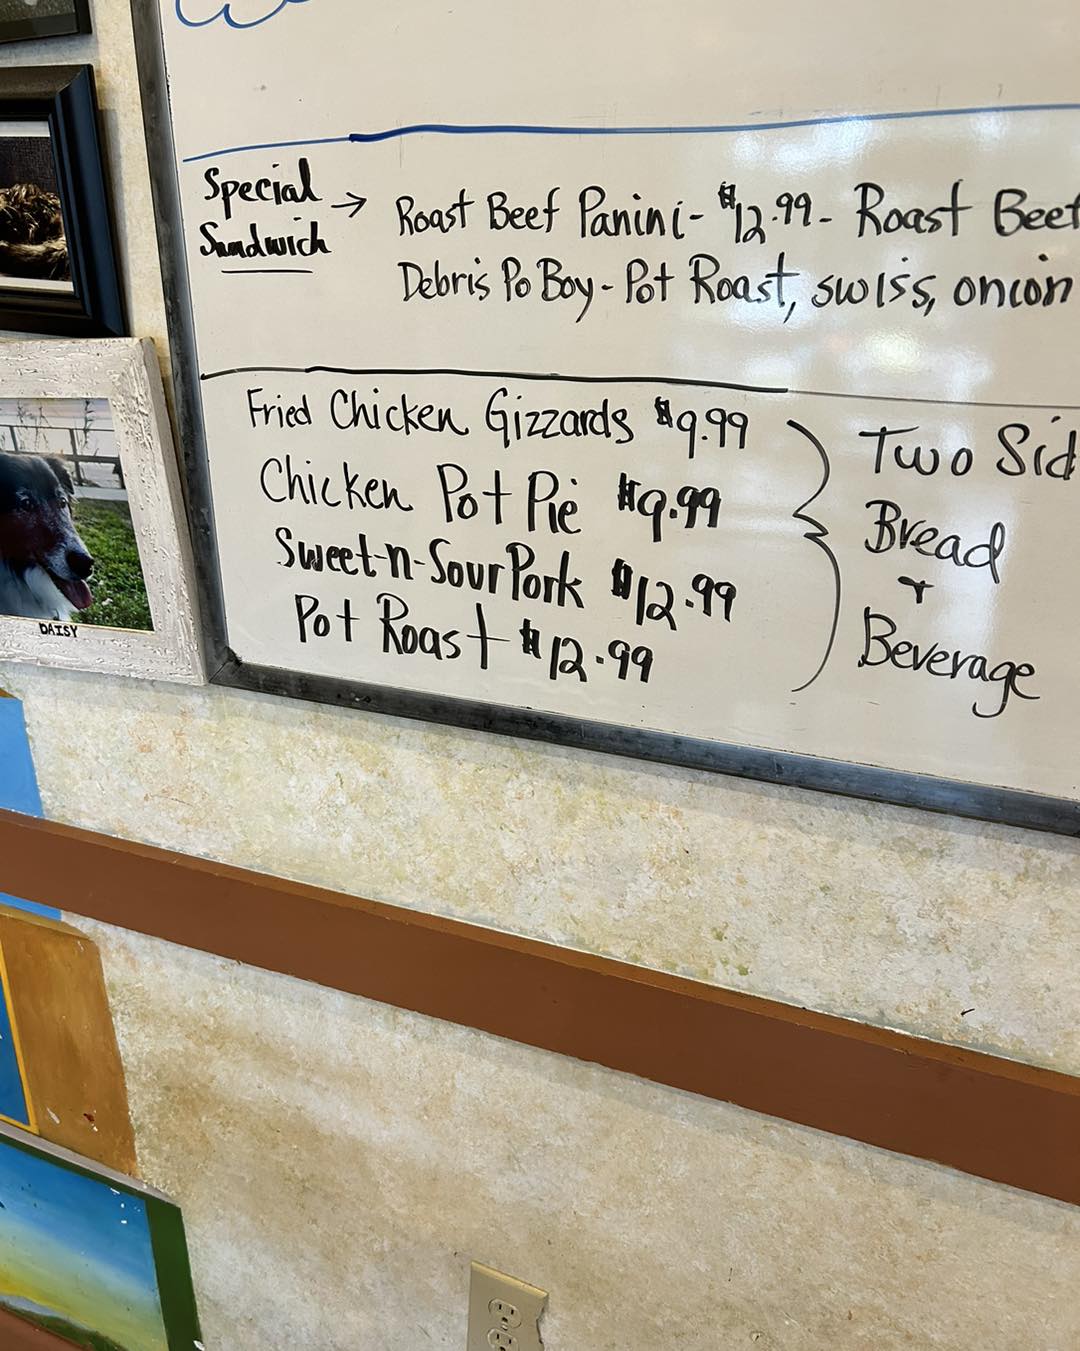 Special
Sandwich
→ Roast Beef Panini - $12.99 - Roast Beef
Debris Po Boy - Pot Roast, swiss, onion
Fried Chicken Gizzards $9.99
Chicken Pot Pie $9.99
Sweet-n-Sour Pork $12.99
Pot Roast $12.99
Two Sid
Bread
+
Beverage
DAISY